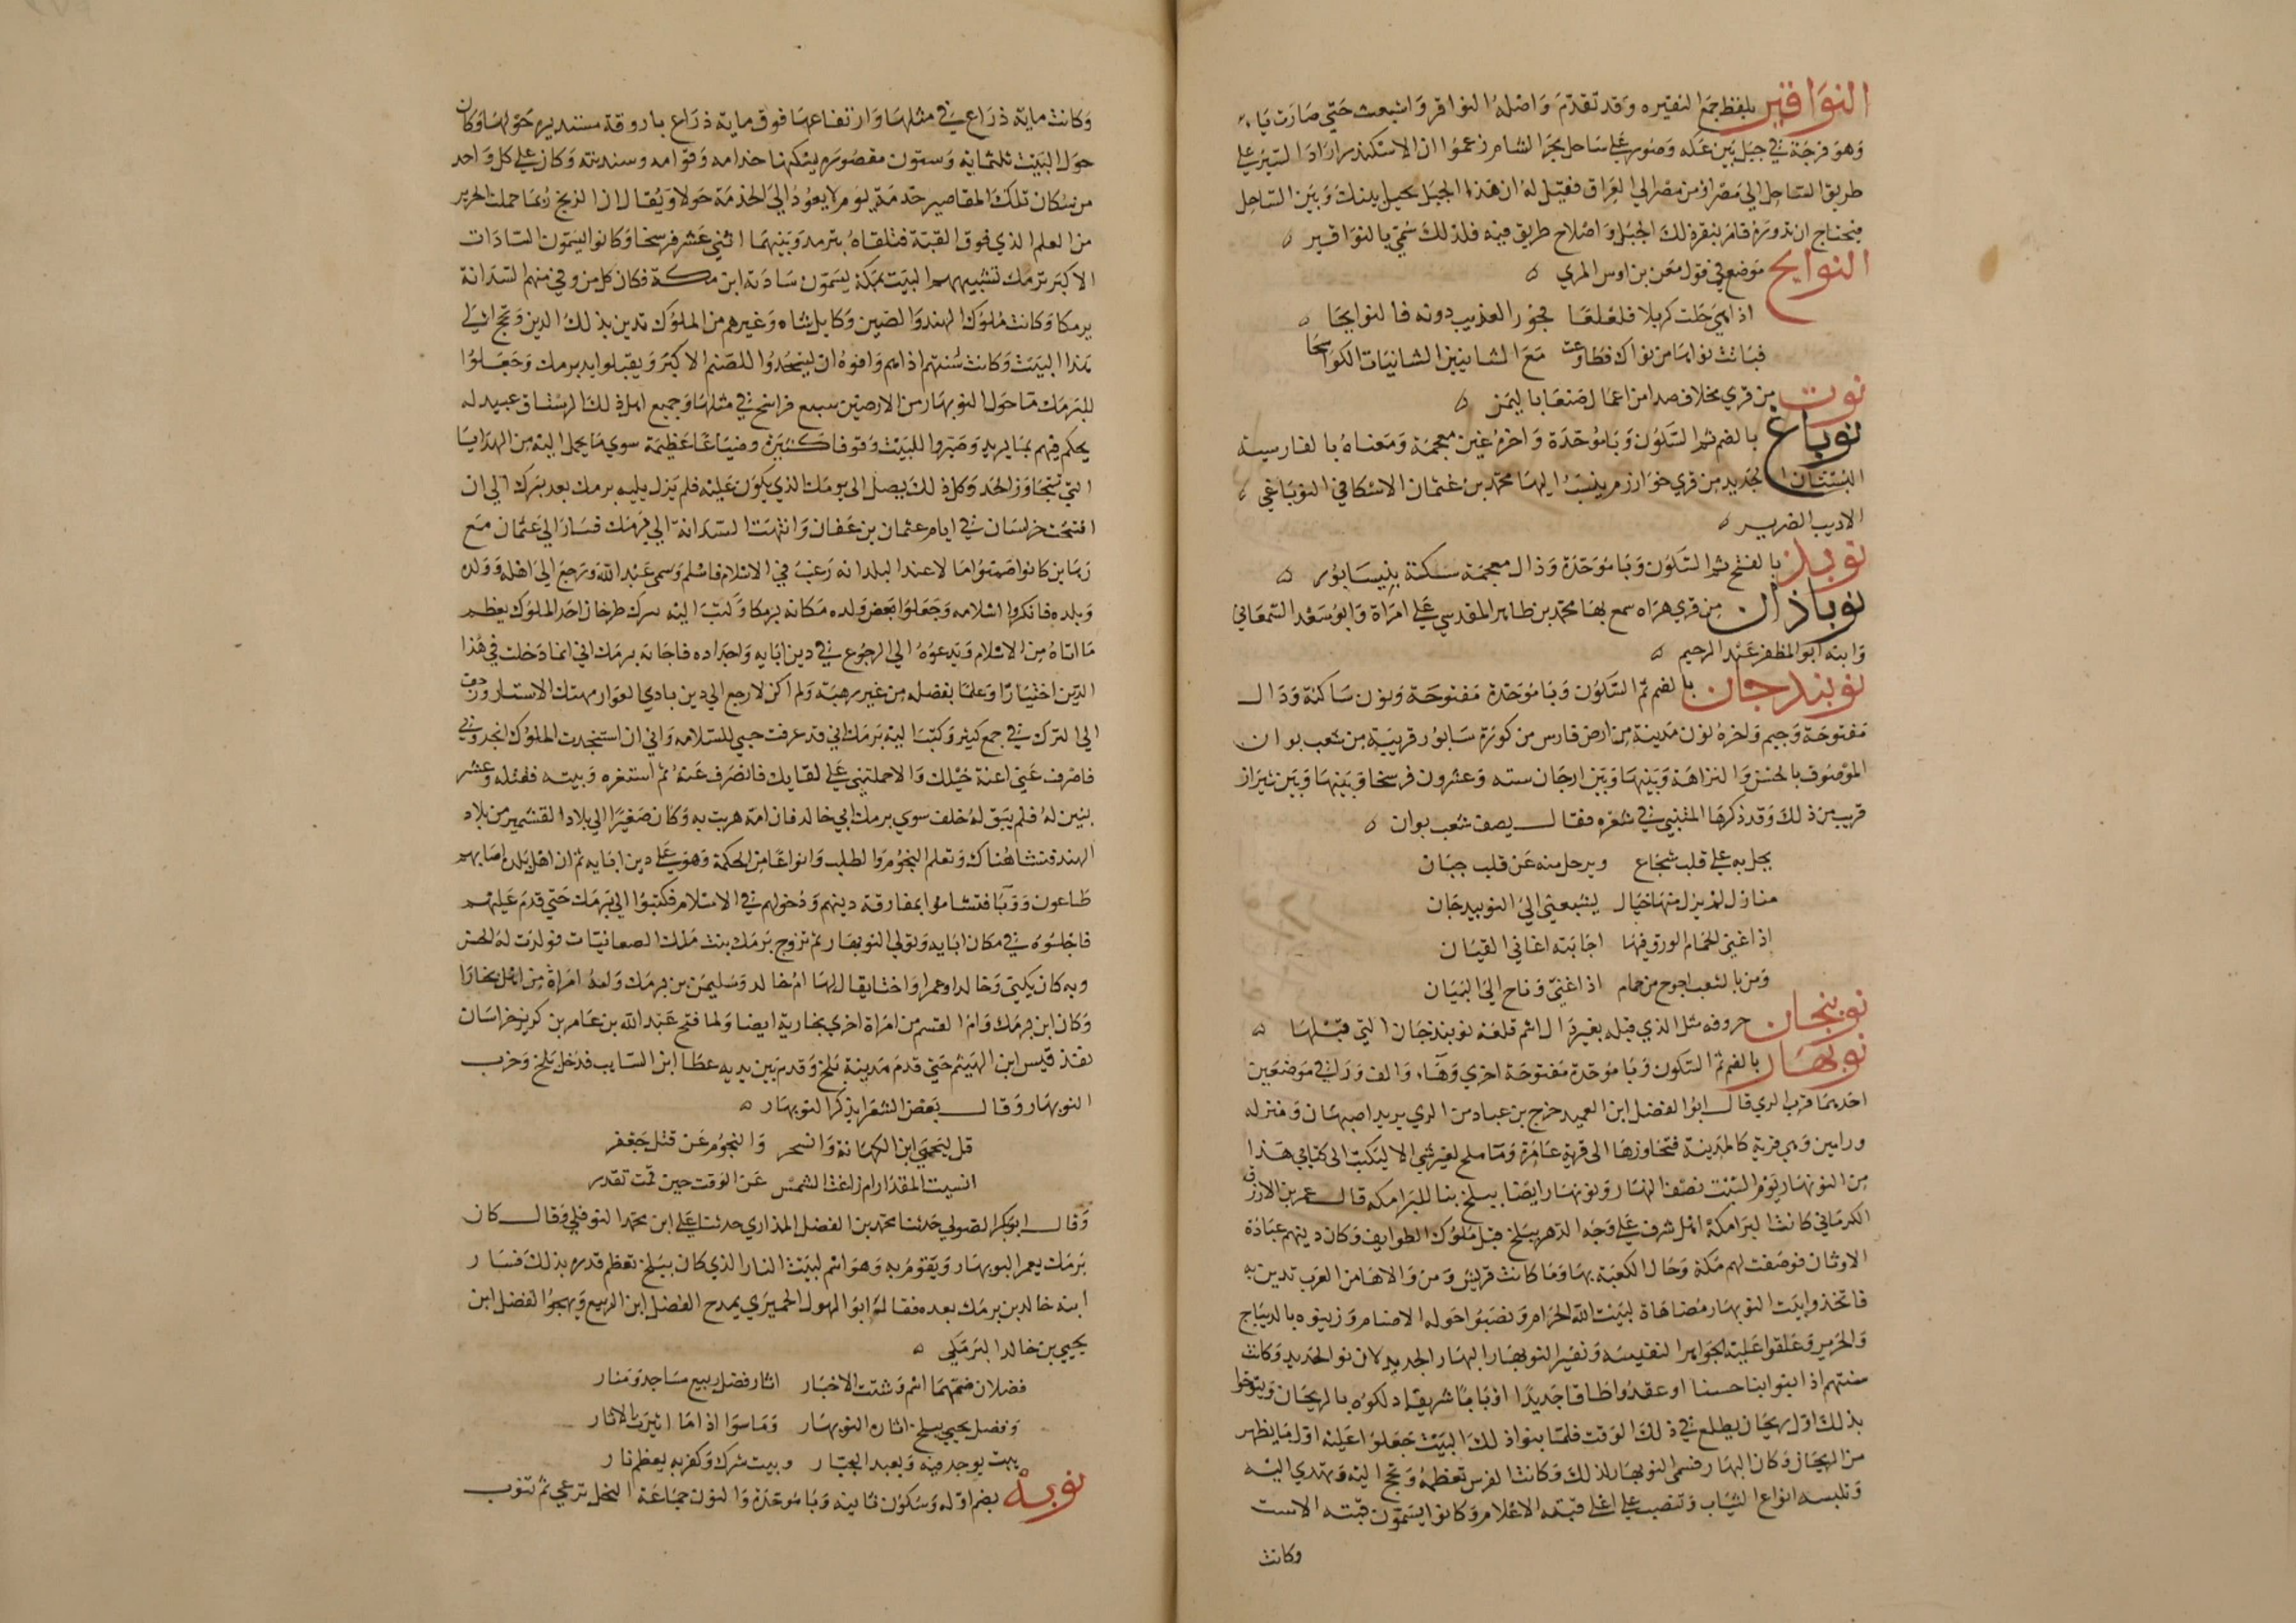 النواقير بلفظ جمع النقيره وقد تقدم واصله النواقر واشبعت حتي صارت ياء
وهو فرجة في جبل بين عكه وصور علي ساحل بحر الشام زعموا ان الاسكندر اراد السير علي
طريق الساحل الي مصر او من مصر الي العراق فقيل له ان هذا الجبل يحيل بينك وبين الساحل
فيحتاج ان تدوره فامر بنقر ذلك الجبل واصلاح طريق فيه فلذلك سمي بالنواقير ه
النوايح موضع في قول معن بن اوس المزي ه
اذا هي حلت كربلا فلعلعا فجوز العذيب دونه فالنوايحا ه
فبانت نواها من نواك فطاوعت مع الشانيين الشانيات الكواشحا
نوت من قري مخلاف صدا من اعمال صنعا باليمن ه
نوباغ بالضم ثم السكون وبا موحدة واخره غين معجمة ومعناه بالفارسية
البستان الجديد من قري خوارزم ينسب اليها محمد بن عثمان الاسكافي النوباغي ه
الاديب الضرير ه
نوبذ بالفتح ثم السكون وبا موحدة وذال معجمة سكة بنيسابور ه
نوباذان من قري هراه سمع بها محمد بن طاهر المقدسي علي امراة وابو سعد السمعاني
وابنه ابو المظفر عبد الرحيم ه
نوبندجان بالضم ثم السكون وبا موحدة مفتوحة ونون ساكنة ودال
مفتوحة وجيم واخره نون مدينة من ارض فارس من كورة سابور قريبة من شعب بوان
الموصوف بالحسن والنزاهة وبينها وبين ارجان ستة وعشرون فرسخا وبينها وبين شيراز
قريب من ذلك وقد ذكرها المتنبي في شعره فقال يصف شعب بوان ه
يحل به علي قلب شجاع ويرحل منه عن قلب جبان
منازل لم يزل منها خيال يشيعني الي النوبيدجان
اذا غني الحمام الورق فيها اجابته اغاني القيان
ومن بالشعب احوج من حمام اذا غني وناح الي البيان
نوبنجان حروفه مثل الذي قبله بغير دال اسم قلعة نوبندجان التي قبلها ه
نوبهار بالضم ثم السكون وبا موحدة مفتوحة اخري وهاء والف ورا في موضعين
احديهما قرب الري قال ابو الفضل ابن العميد خرج بن عباد من الري يريد اصبهان ومنزله
ورامين وهي قرية كالمدينة فتجاوزها الي قرية غامرة وما ملح لغير شي الا ليكتب الي كتابي هذا
من النوبهار يوم السبت نصف النهار ونوبهار ايضا ببلخ بنا للبرامكه قال عمر بن الازرق
الكرماني كانت البرامكة اهل شرف علي وجه الدهر ببلخ قبل ملوك الطوايف وكان دينهم عبادة
الاوثان فوصفت لهم مكة وحال الكعبة بها وما كانت قريش ومن والاها من العرب تدين به
فاتخذوا بيت النوبهار مضاهاة لبيت الله الحرام ونصبوا حوله الاصنام وزينوه بالديباج
والحرير وعلقوا عليه الجواهر النفيسه وتفسير النوبهار البهار الجديد لان نو الجديد وكانت
سنتهم اذا بنوا بنا حسنا او عقدوا طاقا جديدا او بابا شريفا دلكوه بالريحان ويتوخوا
بذلك اول ريحان يطلع في ذلك الوقت فلما بنوا ذلك البيت جعلوا عليه اول ما يظهر
من الريحان وكان البهار فسمي النوبهار لذلك وكانت الفرس تعظمه وتحج اليه وتهدي اليه
وتلبسه انواع الثياب وتنصب علي اعلي قبته الاعلام وكانوا يسمون قبته الاست
وكانت
وكانت ماية ذراع في مثلها وارتفاعها فوق ماية ذراع باروقة مستديره حولها وكان
حول البيت ثلثماية وستون مقصوره يسكنها خدامه وقوامه وسدنته وكان علي كل واحد
من سكان تلك المقاصير خدمة يوم لا يعود الي الخدمة حولا ويقال ان الريح ربما حملت الحرير
من العلم الذي فوق القبة فتلقاه بترمد وبينهما اثني عشر فرسخا وكانوا يسمون السادات
الاكبر برمك تشبيههم البيت بمكة يسمون سادنه ابن مكة فكان كل من ولي منهم السدانة
برمكا وكانت ملوك الهند والصين وكابل شاه وغيرهم من الملوك تدين بذلك الدين وتحج الي
هذا البيت وكانت سنتهم اذا هم وافوه ان يسجدوا للصنم الاكبر ويقبلوا يد برمك وجعلوا
للبرمك ما حول النوبهار من الارضين سبع فراسخ في مثلها وجميع اهل ذلك الرستاق عبيد له
يحكم فيهم بما يريد وصيروا للبيت وقوفا كثيرة وضياعا عظيمة سوي ما يحمل اليه من الهدايا
التي تتجاوز الحد وكل ذلك يصل الي برمك الذي يكون عليه فلم يزل يليه برمك بعد برمك الي ان
افتتحت خراسان في ايام عثمان بن عفان وانتهت السدانة الي برمك فسار الي عثمان مع
رهاين كانوا ضمنوا مالا عن البلد انه رغب في الاسلام فاسلم وسمي عبد الله ورجع الي اهله وولده
وبلده فانكروا اسلامه وجعلوا بعض ولده مكانه برمكا وكتب اليه نيرك طرخان احد الملوك يعظم
ما اتاه من الاسلام ويدعوه الي الرجوع في دين ابايه واجداده فاجابه برمك اني انما دخلت في هذا
الدين اختيارا وعلما بفضله من غير رهبة ولم اكن لارجع الي دين بادي العوار مهتك الاستار وزحف
الي الترك في جمع كثير وكتب اليه برمك اني قد عرفت حبي للسلامه واني ان استنجدت الملوك انجدوني
فاصرف عني اعنة خيلك والا حملتني علي لقايك فانصرف عنه ثم استغره وبيته فقتله وعشر
بنين له فلم يبق له خلف سوي برمك ابي خالد فان امه هربت به وكان صغيرا الي بلاد القشمير من بلاد
الهند فنشا هناك وتعلم النجوم والطب وانواعا من الحكمة وهو علي دين ابايه ثم ان اهل بلده اصابهم
طاعون ووبا فتشاموا بمفارقة دينهم ودخولهم في الاسلام فكتبوا الي برمك حتي قدم عليهم
فاجلسوه في مكان ابايه وتولي النوبهار ثم تزوج برمك بنت ملك الصغانيات فولدت له الحسن
وبه كان يكني وخالدا وعمرا واختا يقال لها ام خالد وسليمن بن برمك ولده امراة من اهل بخارا
وكان ابن برمك وام القسم من امراة اخري بخارية ايضا ولما فتح عبد الله بن عامر بن كريز خراسان
نفذ قيس ابن الهيثم حتي قدم مدينة بلخ وقدم بين يديه عطا ابن السايب فدخل بلخ وخرب
النوبهار وقال بعض الشعرا يذكر النوبهار ه
قل ليحيي ابن الكهانة والسحر والنجوم عن قتل جعفر
انسيت المقدار ام زاغت الشمس عن الوقت حين قمت تقدر
وقال ابو بكر الصولي حدثنا محمد بن الفضل المذاري حدثنا علي ابن محمد النوفلي وقال كان
برمك يعمر النوبهار ويقوم به وهو اسم لبيت النار الذي كان ببلخ تعظم قدره بذلك فسار
ابنه خالد بن برمك بعده فقال له ابو الهول الحميري يمدح الفضل ابن الربيع ويهجو الفضل ابن
يحيي بن خالد البرمكي ه
فضلان ضمهما اسم وشتت الاخبار اثار فضل ربيع مساجد ومنار
وفضل يحيي ببلخ اثاره النوبهار وما سوا اذا ما اثيرت الاثار
بيت يوحد فيه ويعبد الجبار وبيت شرك وكفر به يعظم نار
نوبه بضم اوله وسكون ثانيه وبا موحدة والنون جماعة النحل ترعي ثم تنوب